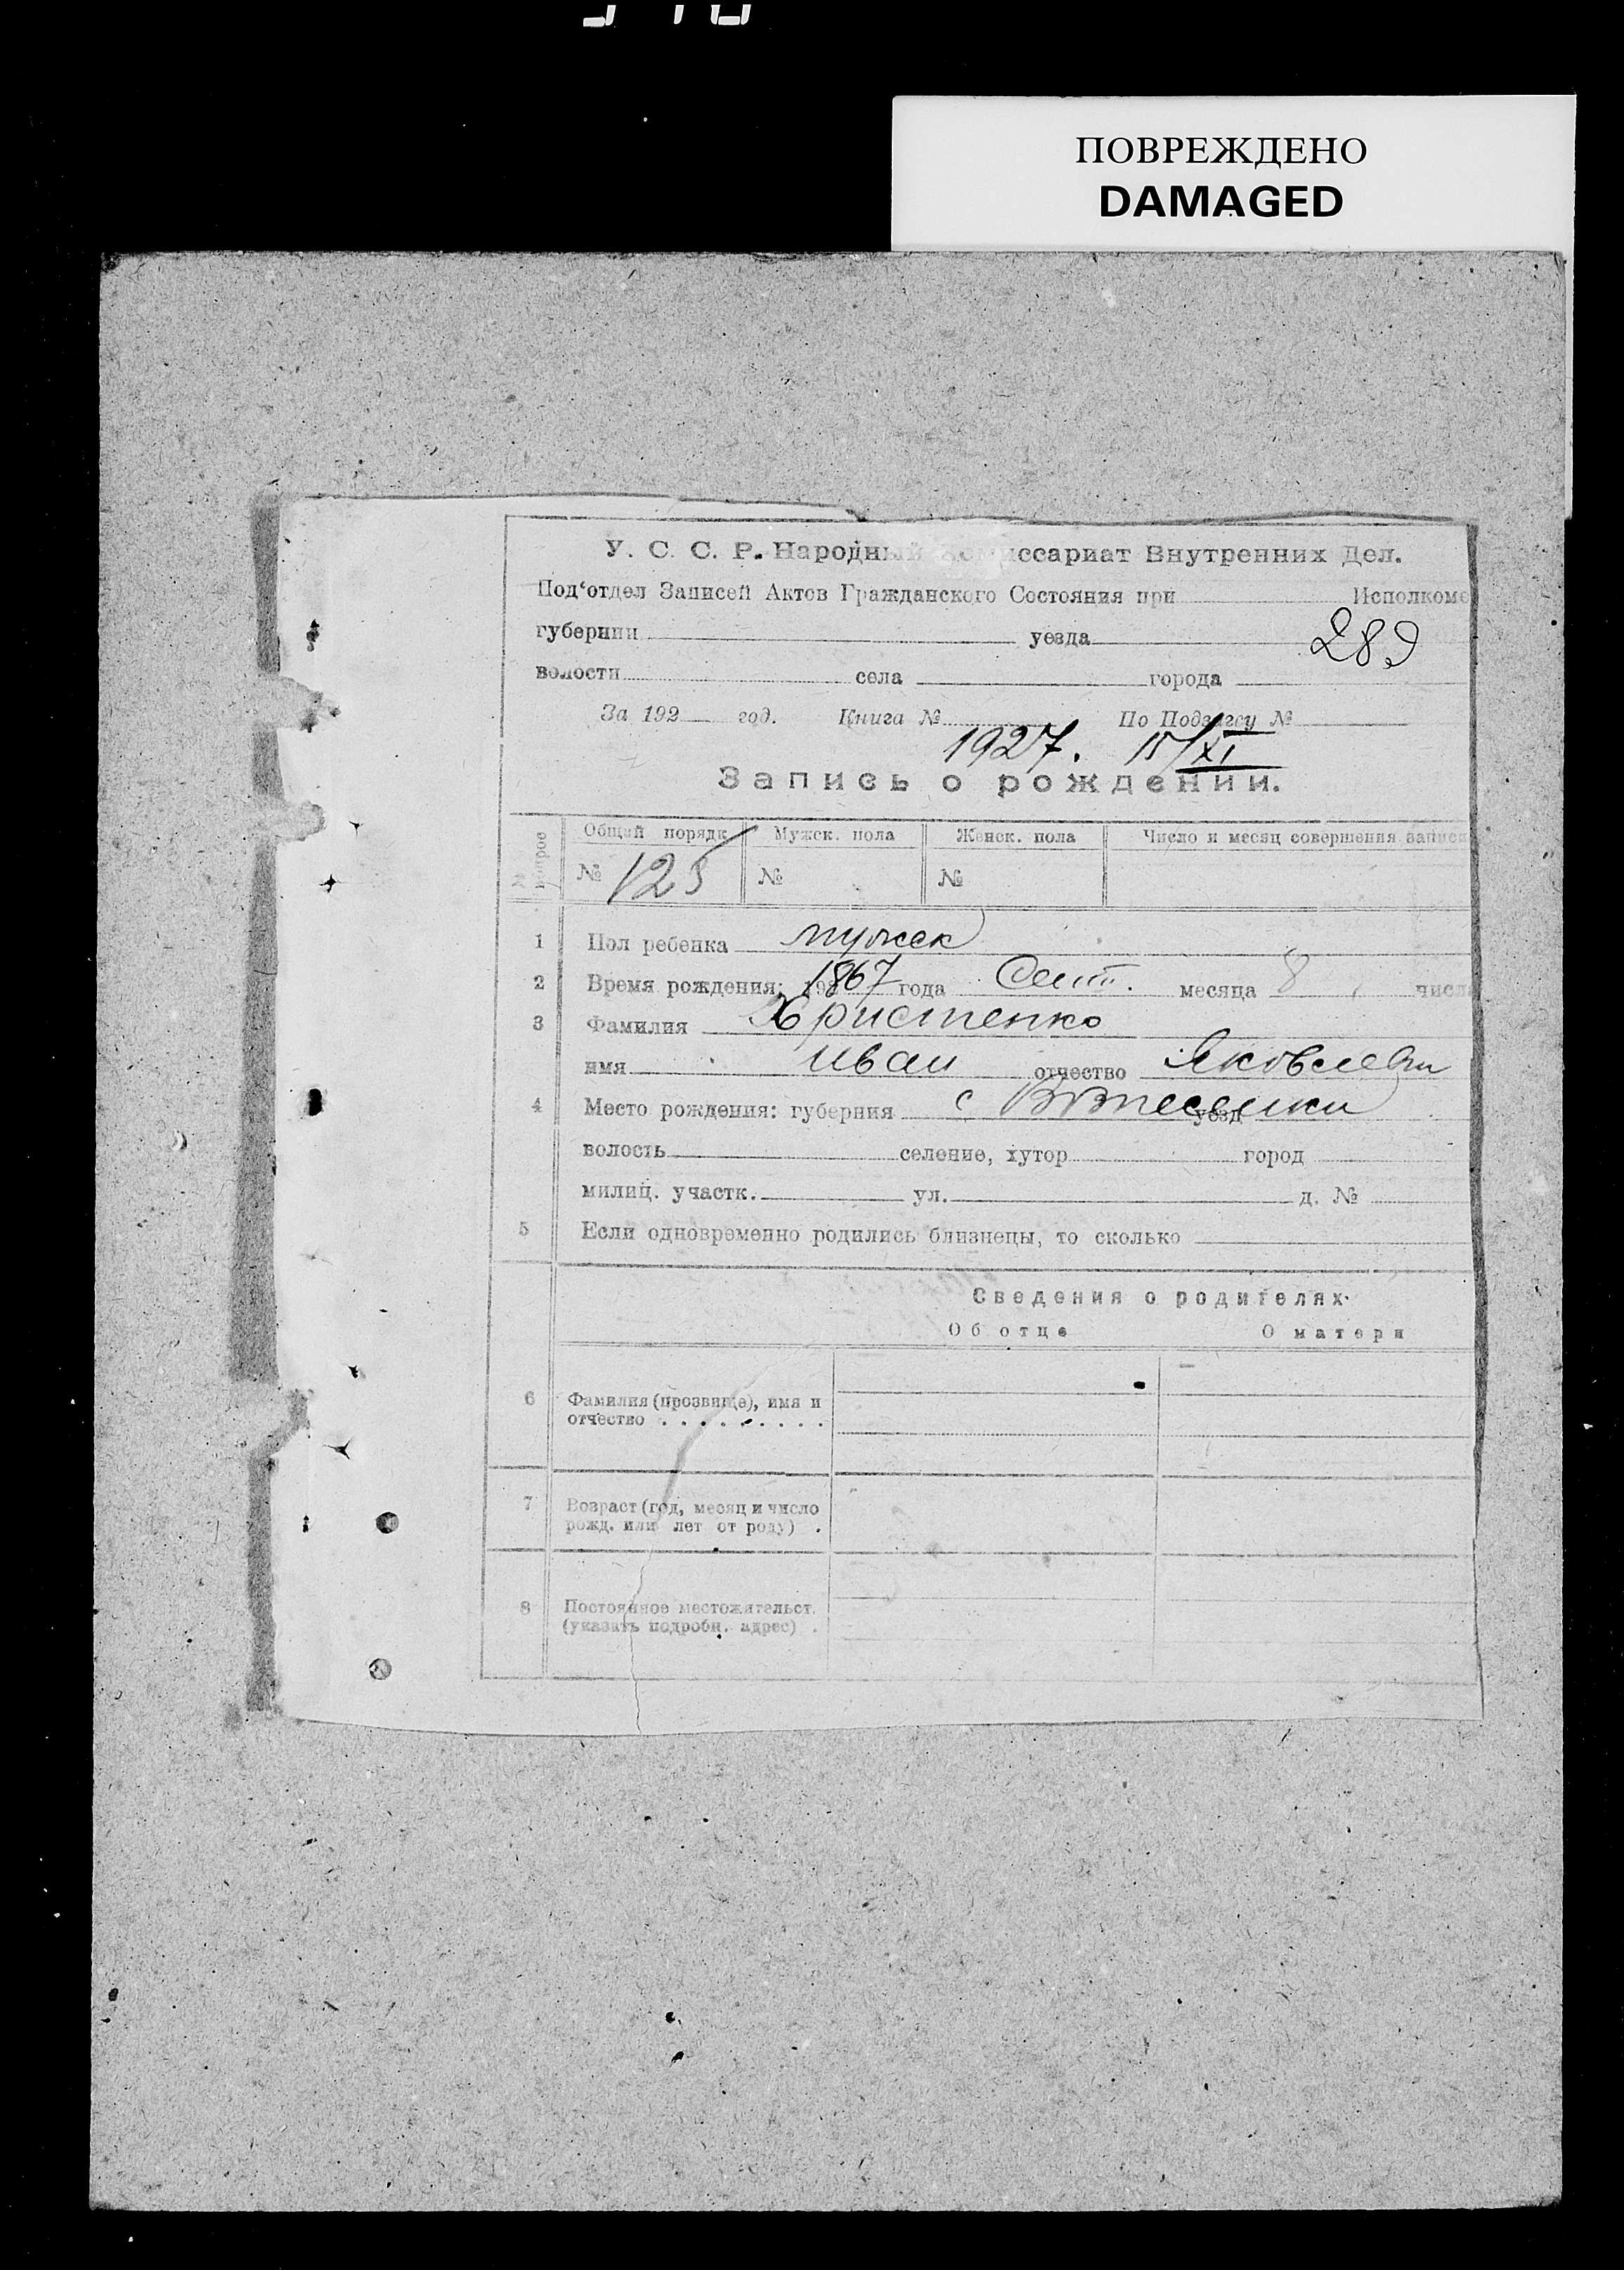 ПОВРЕЖДЕНО
DAMAGED
У. С. С. Р. Народный Комиссариат Внутренних Дел.
Под‘отдел Записей Актов Гражданского Состояния при Исполкоме
губернии уезда 289
волости села города
За 192 год. Книга № По Подзагсу №
1927. 15/XI
Запись о рождении.
Общий порядк Мужск. пола Женск. пола Число и месяц совершения записи
№ 125 № №
1 Пол ребенка мужск
2 Время рождения: 1867 года Сент. месяца 8 числа
3 Фамилия Христенко
имя Иван отчество Яковлевич
4 Место рождения: губерния с Вознесенки уезд
волость селение, хутор город
милиц. участк. ул. д. №
5 Если одновременно родились близнецы, то сколько
Сведения о родителях.
Об отце О матери
6 Фамилия (прозвище), имя и
отчество . . . . . . . . .
7 Возраст (год, месяц и число
рожд. или лет от роду) .
8 Постоянное местожительст.
(указать подробн. адрес) .